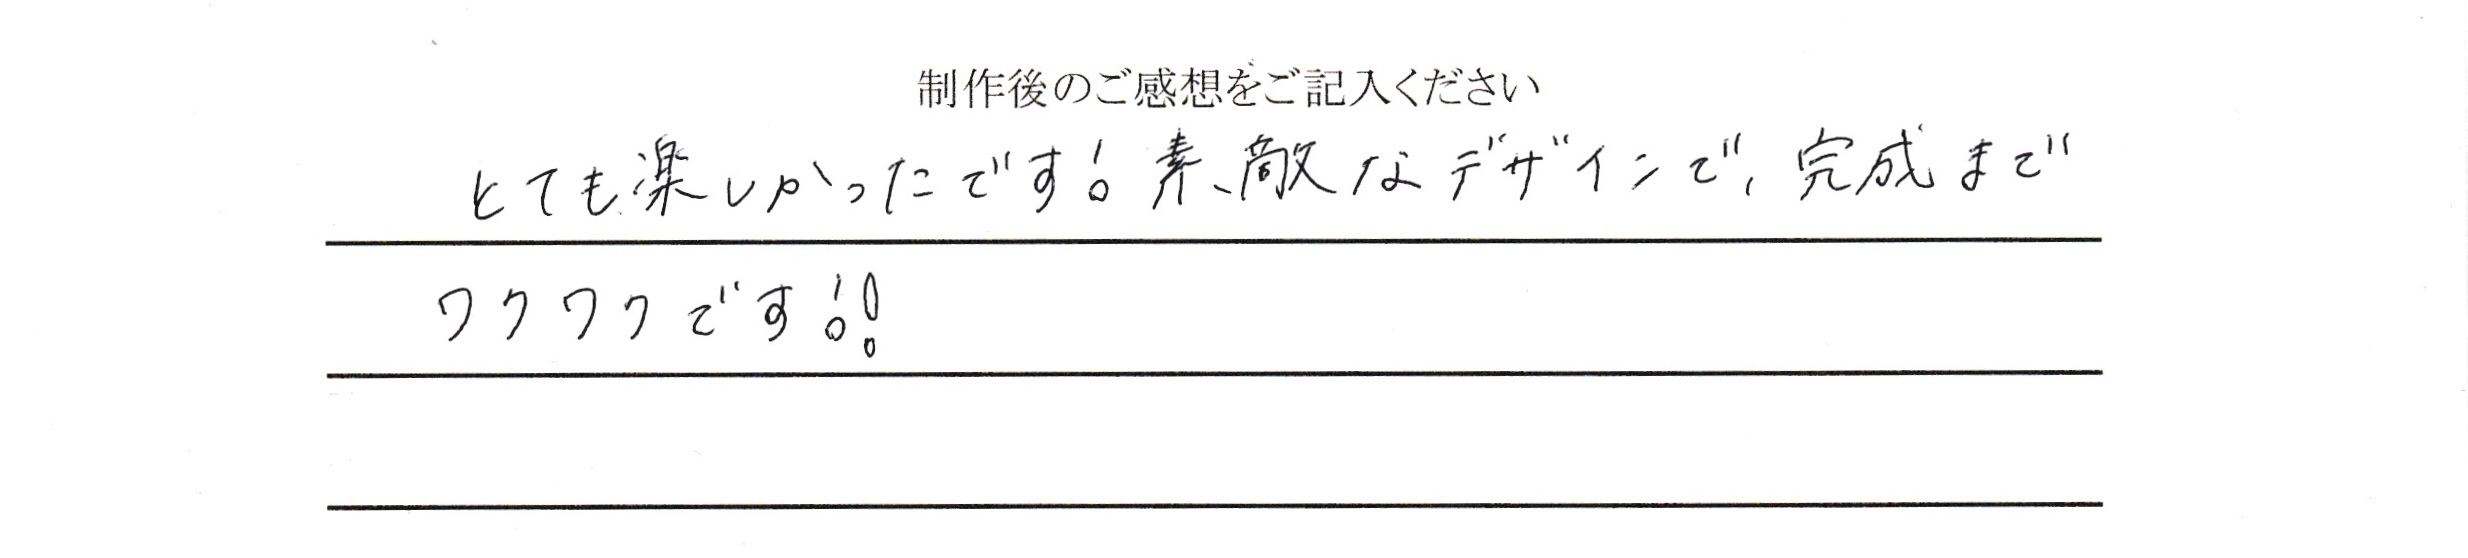 制作後のご感想をご記入ください
とても楽しかったです！素敵なデザインで、完成まで
ワクワクです！！